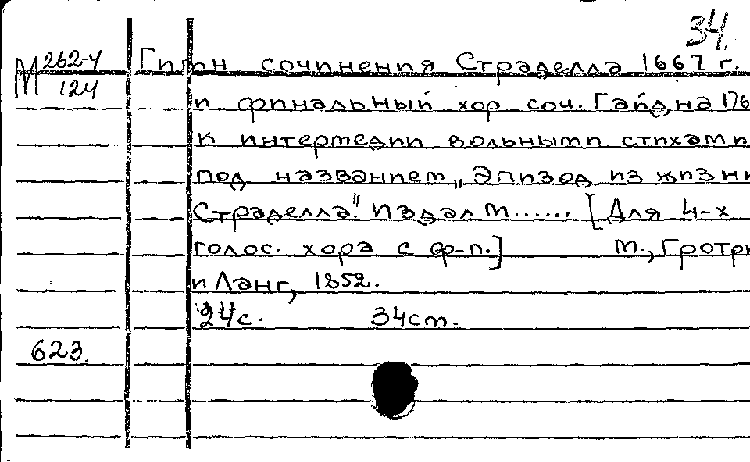 34.
М 262-4
124
Гимн сочинения Страделла 1667 г.
и финальный хор соч. Гайдна 176
к интермедии вольными стихами
под названием „Эпизод из жизни
Страделла". Издал М...... [Для 4-х
голос. хора с ф-п.] М., Гротри
и Ланг, 1852.
24с. 34см.
623.